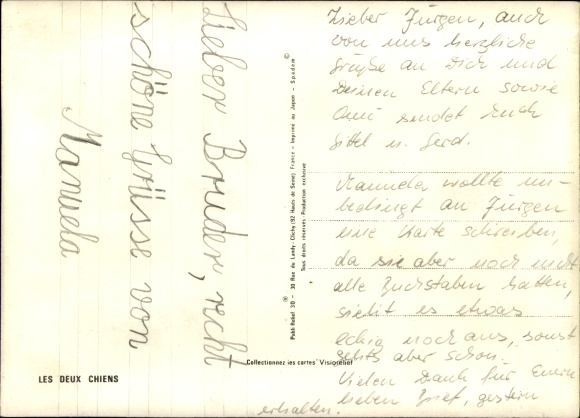 Lieber Bruder, recht
schöne Grüsse von
Manuela
Lieber Jürgen, auch
von uns herzliche
Grüße an Dich und
Deinen Eltern sowie
Omi sendet Euch
Gittel u. Gerd.
Manuela wollte un-
bedingt an Jürgen
eine Karte schreiben,
da sie aber noch nicht
alle Buchstaben hatten,
sieht es etwas
eckig noch aus, sonst
gehts aber schon.
Vielen Dank für Euren
lieben Brief, gestern
erhalten.
Publi Rebel 3D - 30 Rue du Landy-Clichy (92 Hauts de Seine) France - Imprimé au Japon - Spadem ©
Tous droits réservés Production exclusive
Collectionnez les cartes "Visiorelief
LES DEUX CHIENS